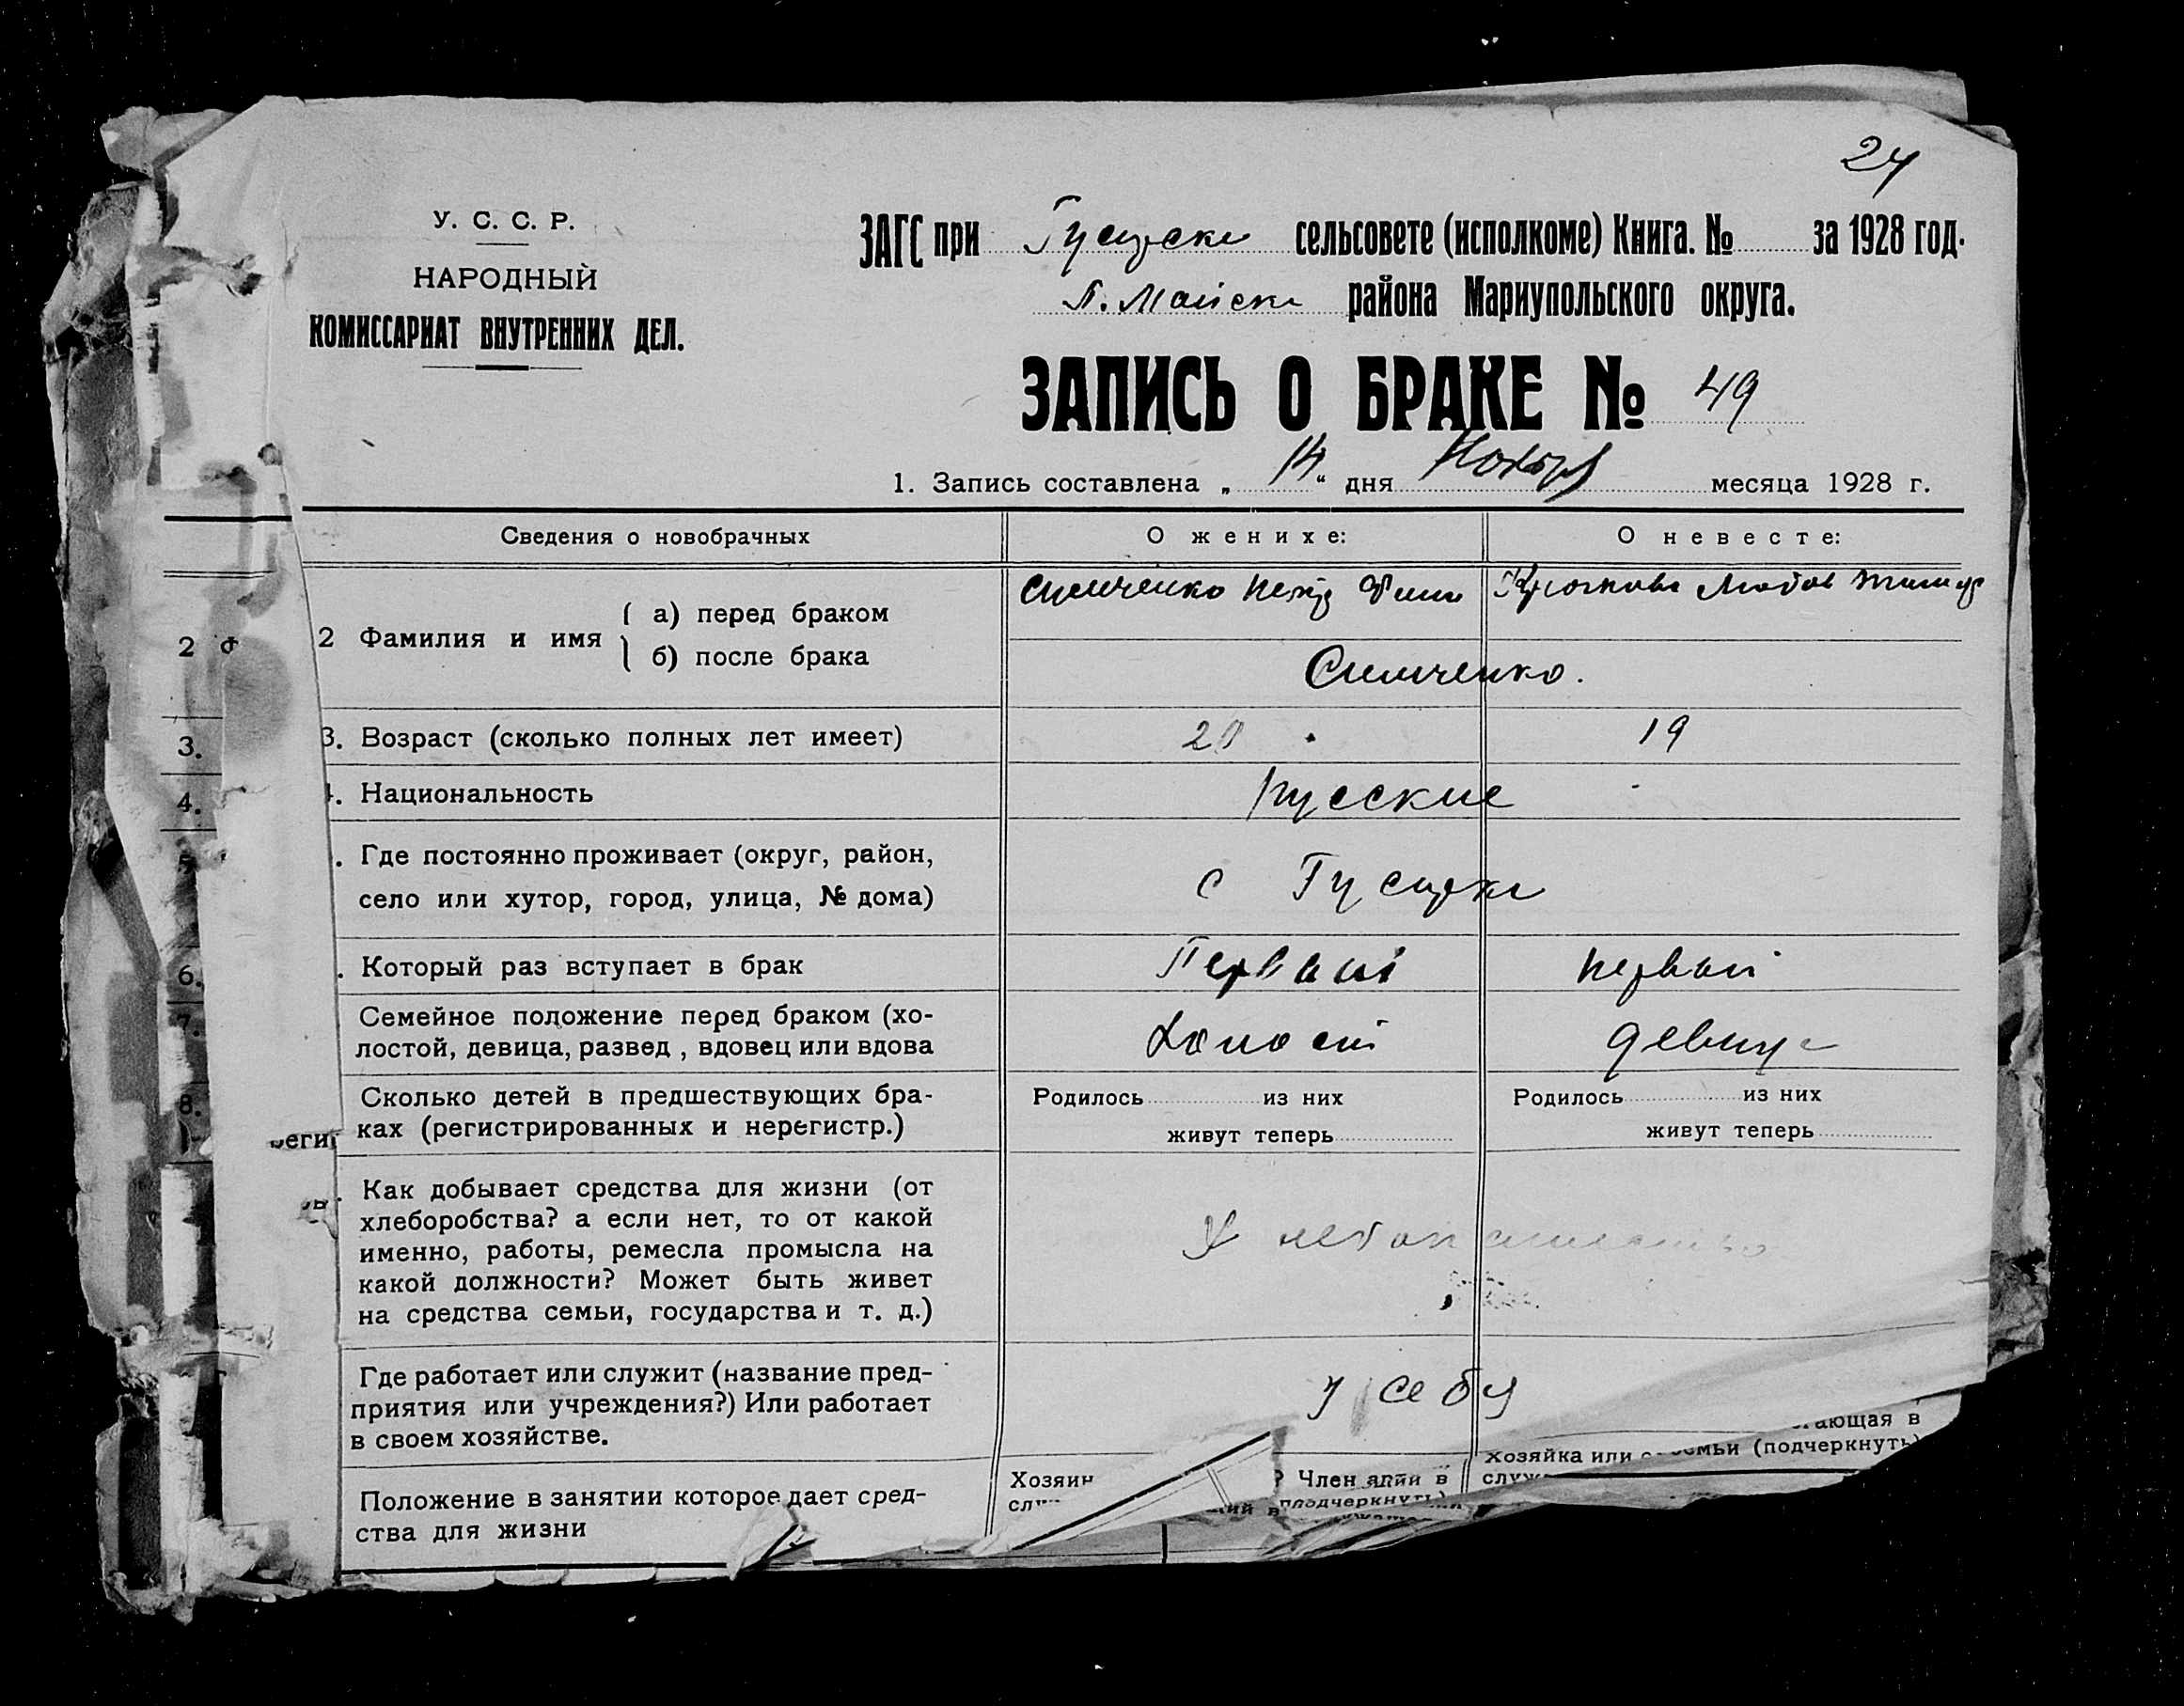 24
У. С. С. Р.
НАРОДНЫЙ
КОМИССАРИАТ ВНУТРЕННИХ ДЕЛ.
ЗАГС при сельсовете (исполкоме) Книга. № за 1928 год.
П. Майск района Мариупольского округа.
ЗАПИСЬ О БРАКЕ № 49
1. Запись составлена „14“ дня Ноября месяца 1928 г.
Сведения о новобрачных
О женихе:
О невесте:
2 Ф
2 Фамилия и имя
а) перед браком
б) после брака
Симченко Петр Фили
Крюкова Любов Тимоф
Симченко.
3.
3. Возраст (сколько полных лет имеет)
20
19
4.
Национальность
русские
Где постоянно проживает (округ, район,
село или хутор, город, улица, № дома)
с
6.
Который раз вступает в брак
Первый
первый
7.
Семейное положение перед браком (хо-
лостой, девица, развед , вдовец или вдова
Холост
девица
8.
Сколько детей в предшествующих бра-
ках (регистрированных и нерегистр.)
Родилось из них
живут теперь
Родилось из них
живут теперь
Как добывает средства для жизни (от
хлеборобства? а если нет, то от какой
именно, работы, ремесла промысла на
какой должности? Может быть живет
на средства семьи, государства и т. д.)
Где работает или служит (название пред-
приятия или учреждения?) Или работает
в своем хозяйстве.
у себя
Положение в занятии которое дает сред-
ства для жизни
Хозяин
Член
Хозяйка или
(подчеркнуть)